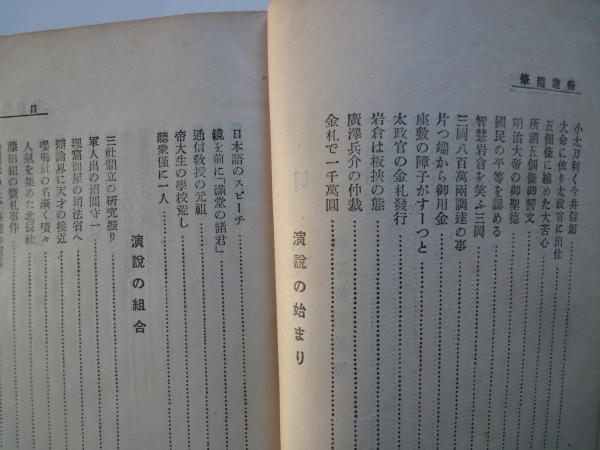 漫遊隨筆
小太刀利く今井信郎
大命に依り太政官に出仕
五個條に纏めた大苦心
所謂五個條御誓文
明治大帝の御聖德
國民の平等を認める
智慧岩倉を笑ふ三岡
三岡八百萬兩調達の事
片つ端から御用金
座敷の障子がすーつと
太政官の金札發行
岩倉は板挾の態
廣澤兵介の仲裁
金札で一千萬圓
演說の始まり
日本語のスピーチ
鏡を前に「滿堂の諸君」
通信敎授の元祖
帝大生の學校荒し
聽衆僅に一人
演說の組合
三社鼎立の研究振り
軍人出の沼間守一
理窟問屋の司法省へ
辯論界に天才の接近
嚶鳴社の名漸く嘖々
人氣を集めた北辰社
藤田組の贋札事件
目